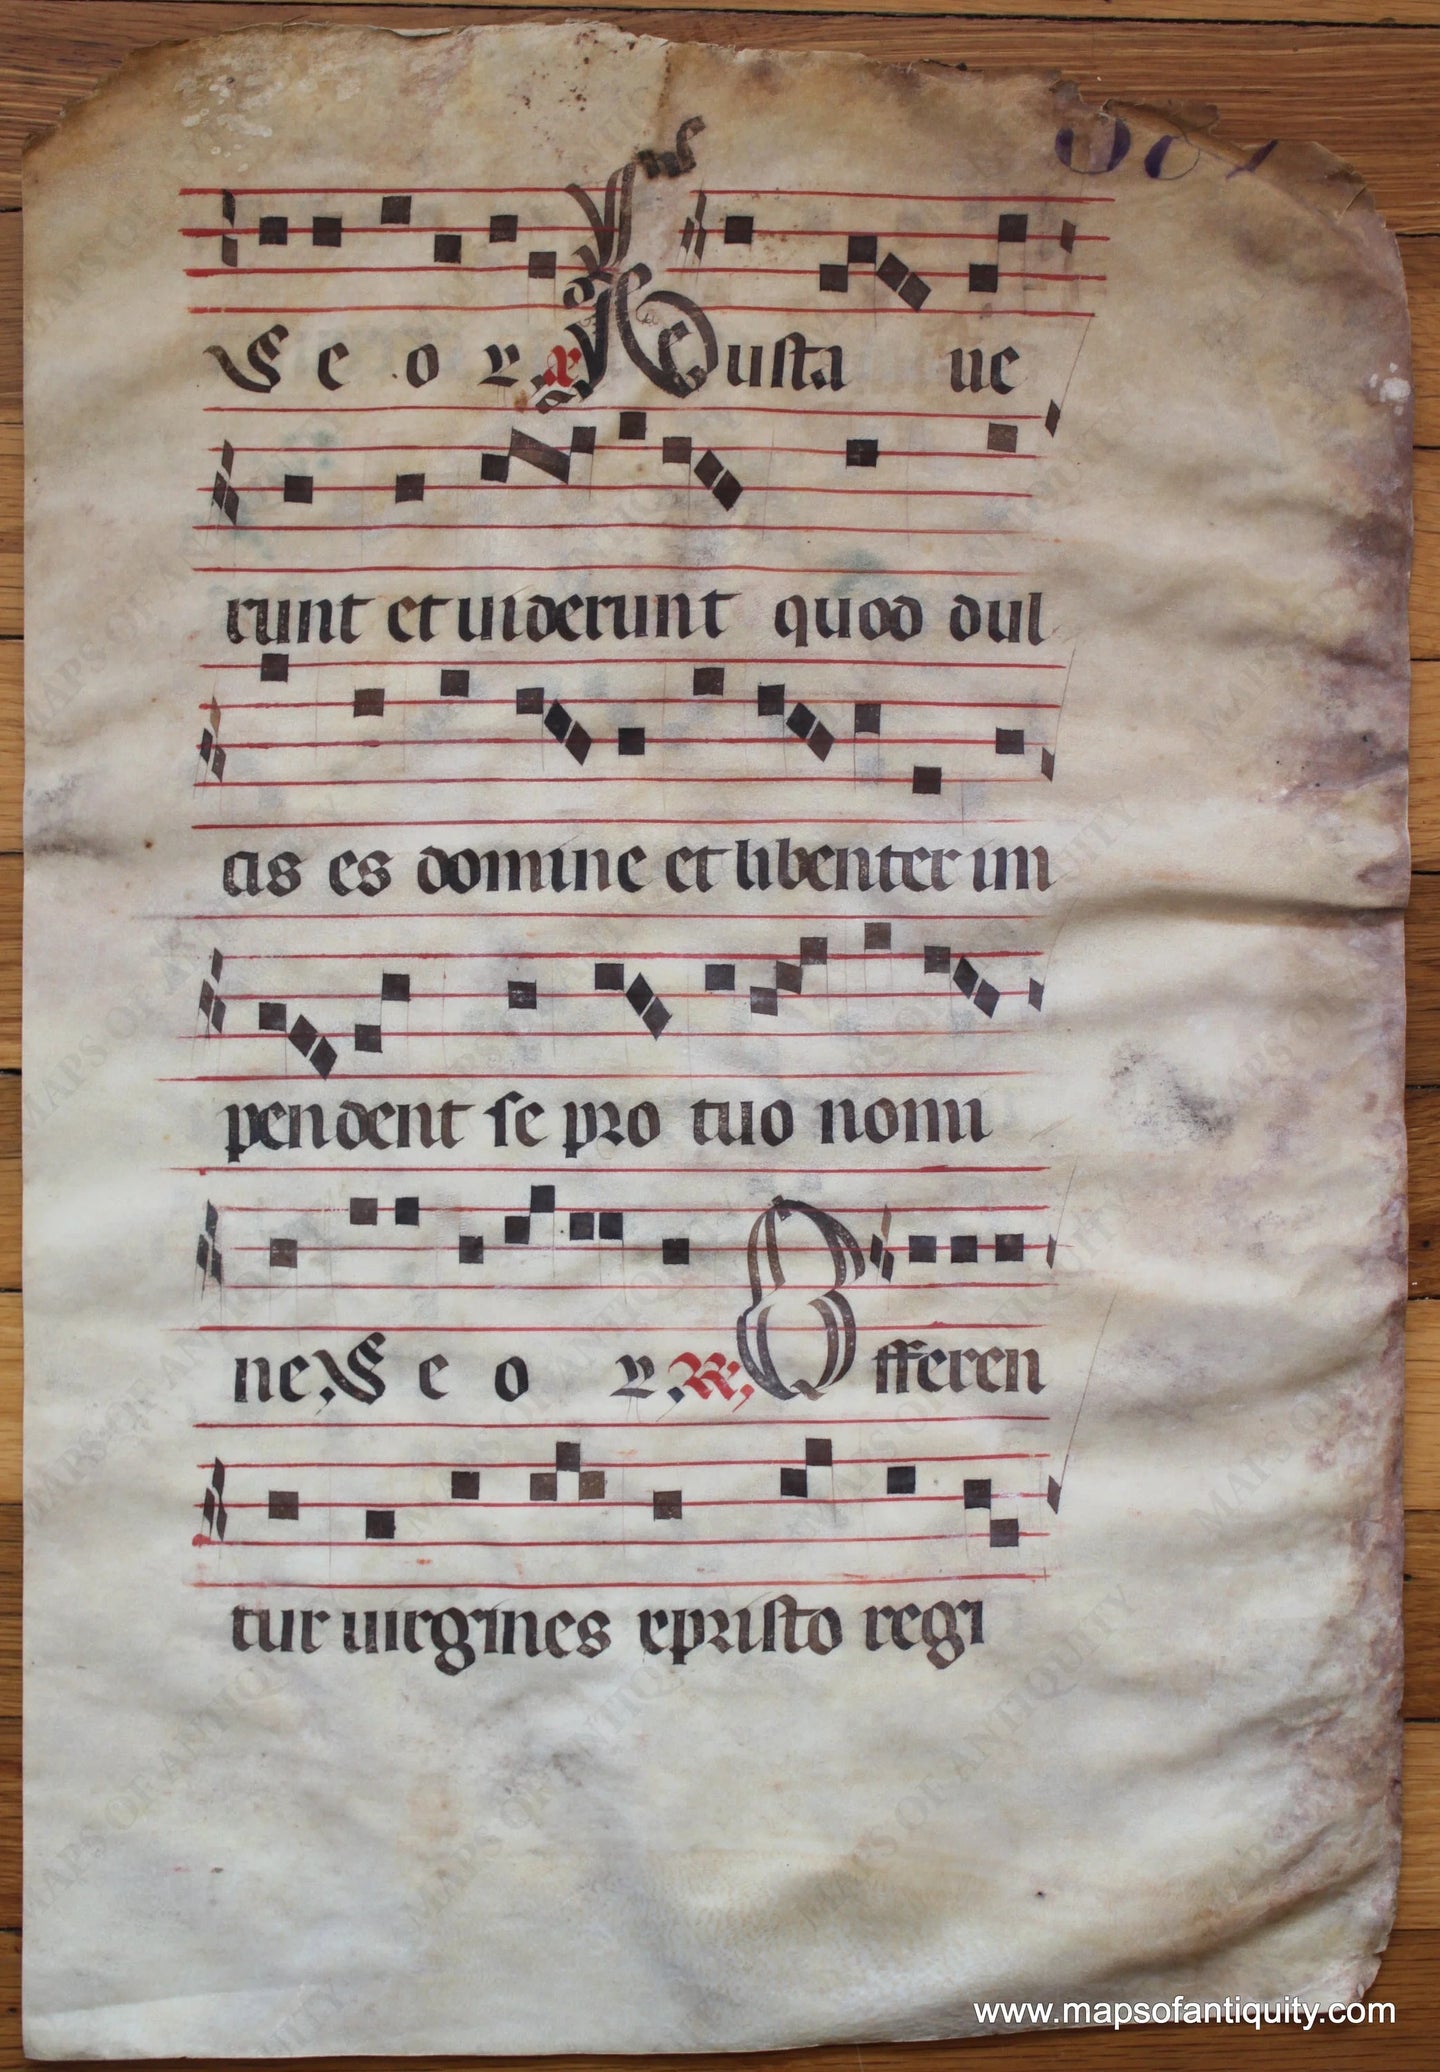 S e o v. Gusta ue
runt et uiderunt quod dul
cis es domine et libenter im
pendent se pro tuo nomi
ne. S e o v. R. Offeren
tur uirgines xpristo regi
www.mapsofantiquity.com